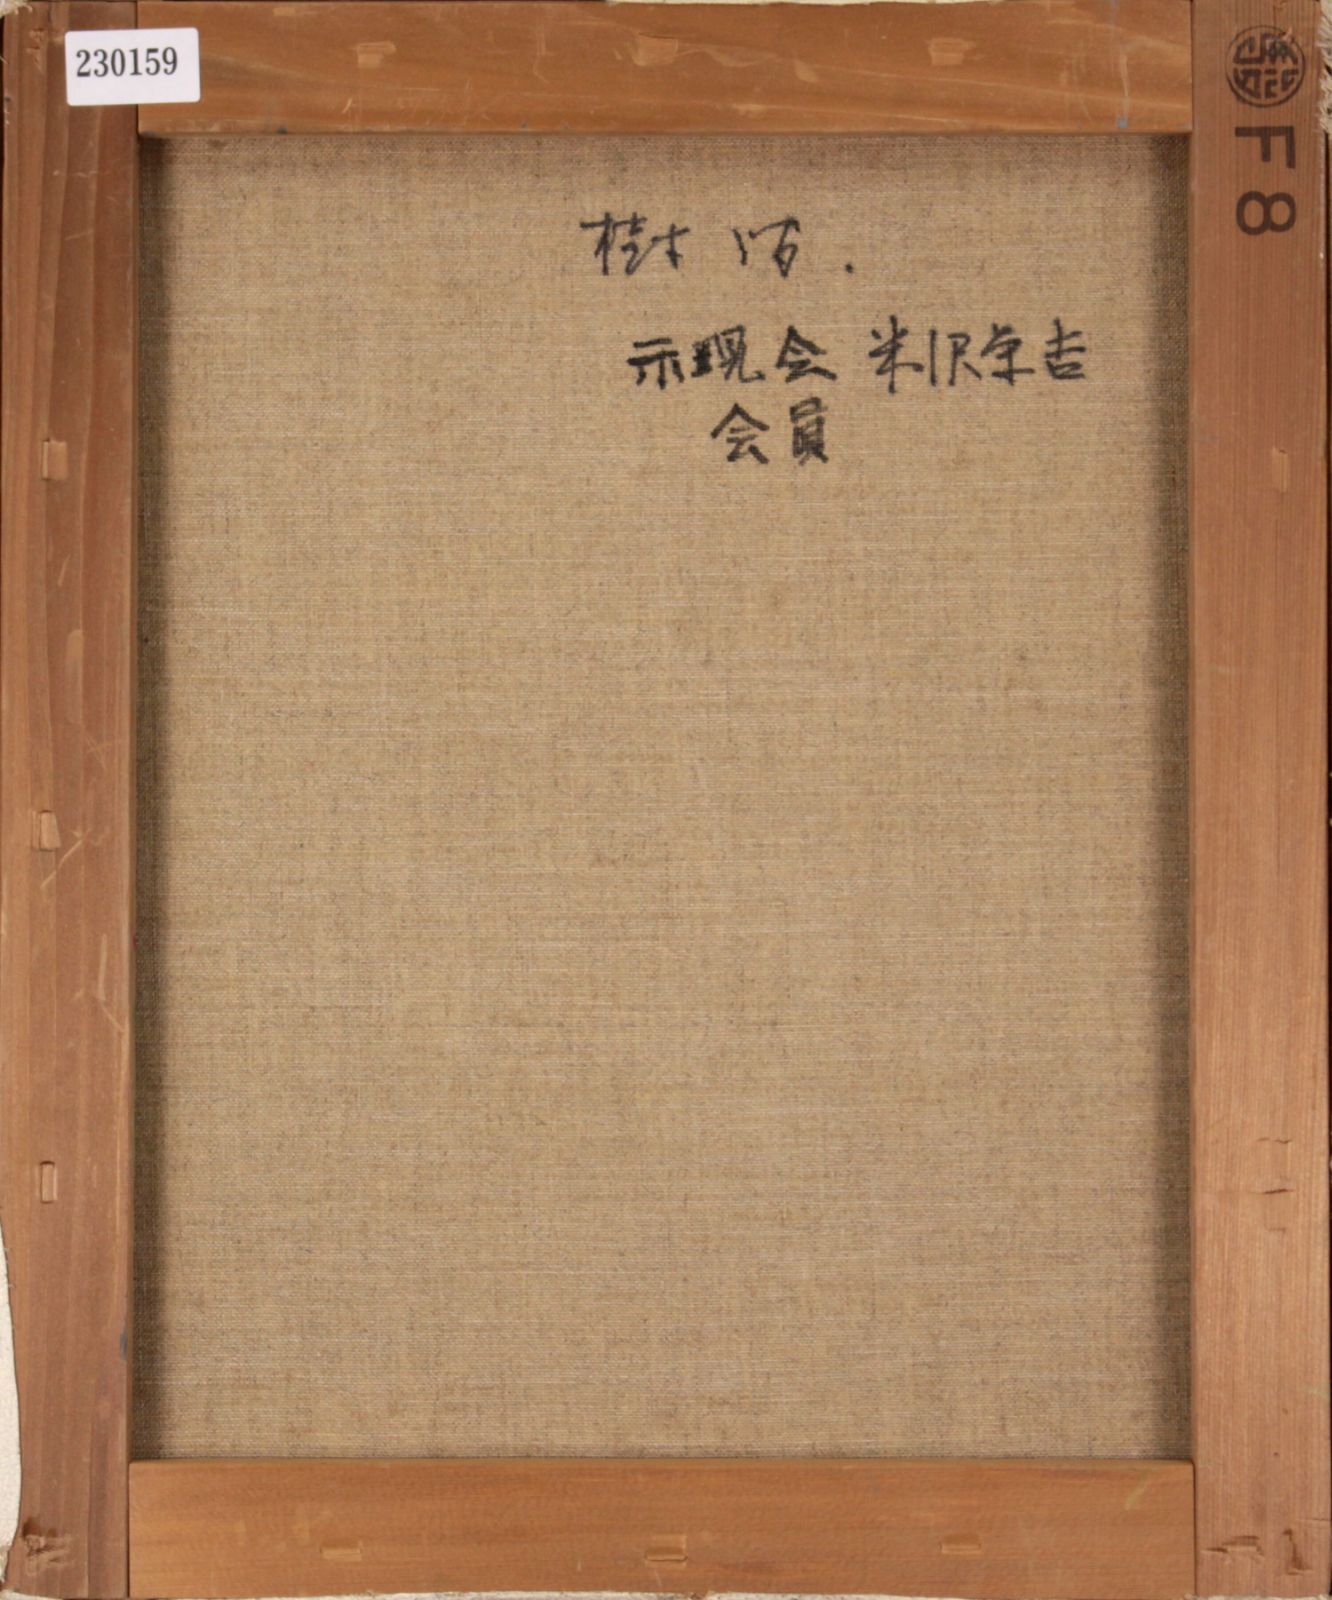 230159
F8
樹陌.
示現会 米沢栄吉
会員